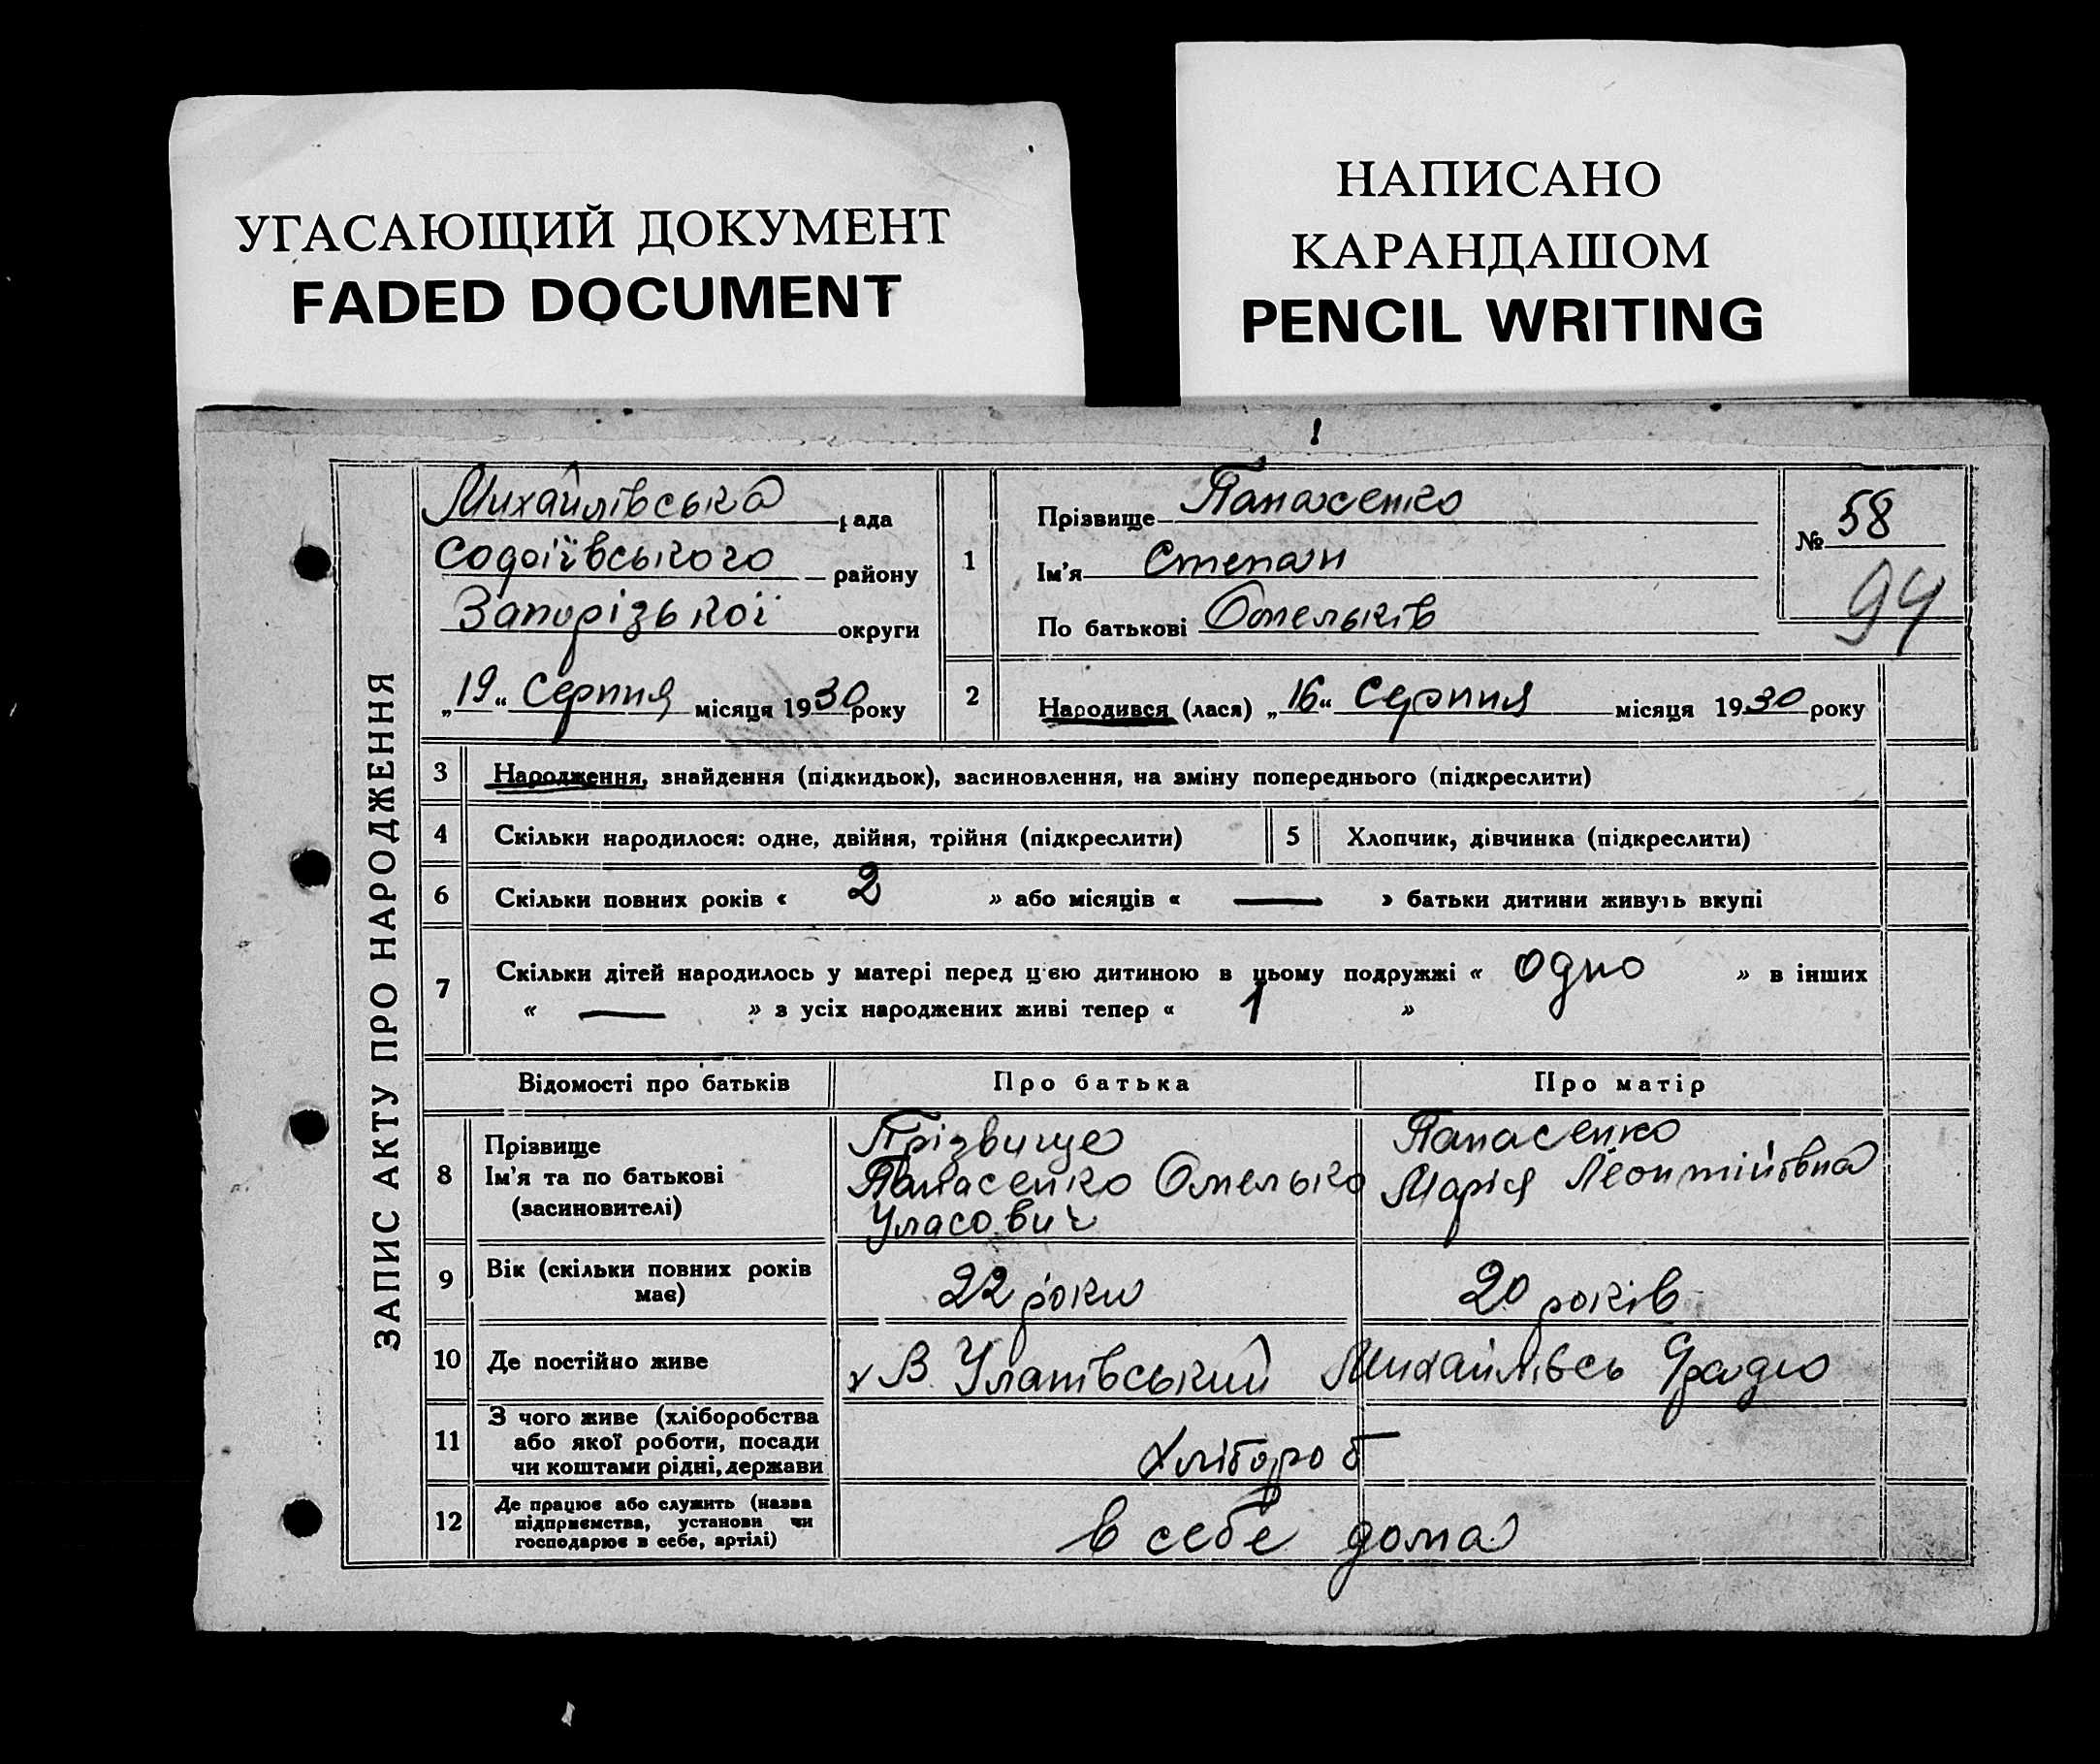 УГАСАЮЩИЙ ДОКУМЕНТ
FADED DOCUMENT
НАПИСАНО
КАРАНДАШОМ
PENCIL WRITING
ЗАПИС АКТУ ПРО НАРОДЖЕННЯ
Михайлівська рада
району
Запорізької округи
„19“ Серпня місяця 1930 року
1
Прізвище Панасенко
Ім'я Степан
По батькові Омельків
№ 58
94
2 Народився (лася) „16“ Серпня місяця 1930 року
3 Народження, знайдення (підкидьок), засиновлення, на зміну попереднього (підкреслити)
4 Скільки народилося: одне, двійня, трійня (підкреслити) 5 Хлопчик, дівчинка (підкреслити)
6 Скільки повних років « 2 » або місяців « — » батьки дитини живуть вкупі
7 Скільки дітей народилось у матері перед цією дитиною в цьому подружжі « одно » в інших
« — » з усіх народжених живі тепер « 1 »
Відомості про батьків Про батька Про матір
8 Прізвище
Ім'я та по батькові
(засиновителі)
Прізвище
Панасенко Омелько
Уласович
Панасенко
Марія Леонтіївна
9 Вік (скільки повних років
має)
22 роки 20 років
10 Де постійно живе х В. Улатівський Михайлівсь
11 З чого живе (хліборобства
або якої роботи, посади
чи коштами рідні, держави
хлібороб
12 Де працює або служить (назва
підприємства, установи чи
господарює в себе, артілі)
в себе дома